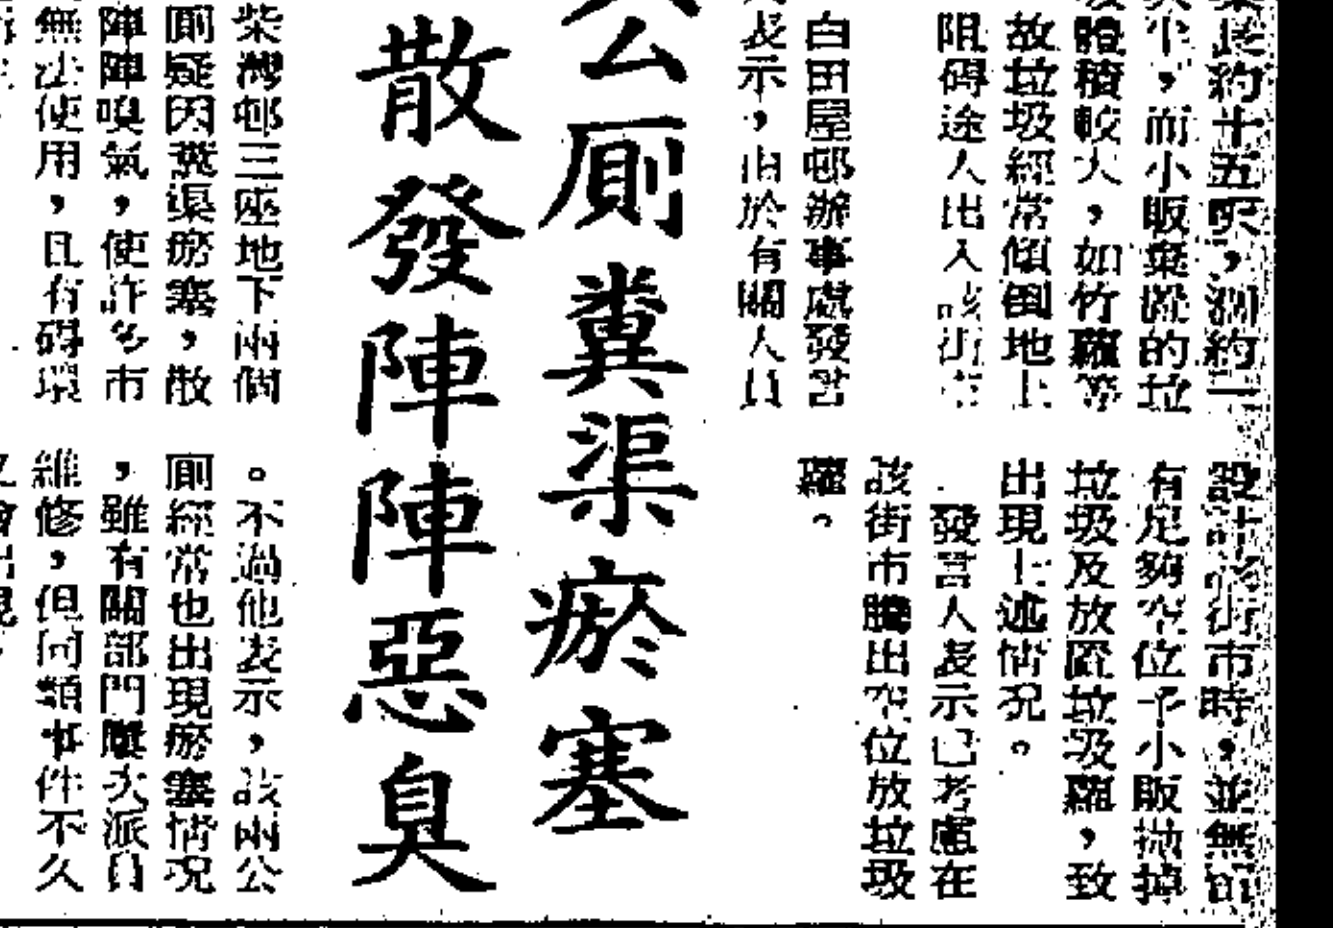 長約十五呎，濶約二
小，而小販棄置的垃
圾體積較大，如竹籮等
故垃圾經常傾倒地上
阻碍途人出入該街市
白田屋邨辦事處發言
表示，由於有關人員
設計該街市時，並無預
有足夠空位予小販拋掉
垃圾及放置垃圾籮，致
出現上述情況。
發言人表示已考慮在
該街市騰出空位放垃圾
籮。
公厠糞渠瘀塞
散發陣陣惡臭
柴灣邨三座地下兩個
厠疑因糞渠瘀塞，散
陣陣嗅氣，使許多市
無法使用，且有碍環
。不過他表示，該兩公
厠經常也出現瘀塞情況
，雖有關部門屢次派員
維修，但同類事件不久
又會出現。